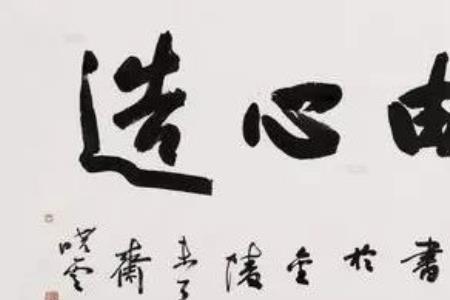 由心造
書於金陵未了齋
曉雲